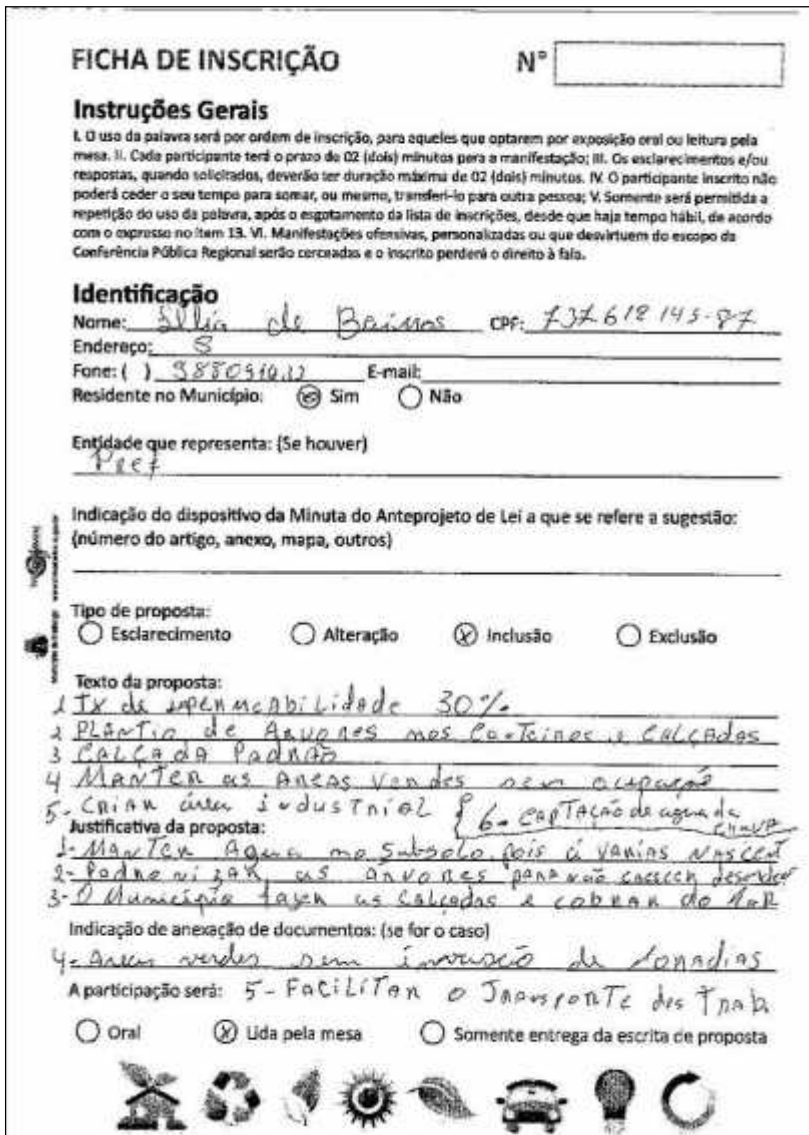 FICHA DE INSCRIÇÃO Nº
Instruções Gerais
I. O uso da palavra será por ordem de inscrição, para aqueles que optarem por exposição oral ou leitura pela
mesa. II. Cada participante terá o prazo de 02 (dois) minutos para a manifestação; III. Os esclarecimentos e/ou
respostas, quando solicitados, deverão ter duração máxima de 02 (dois) minutos. IV. O participante inscrito não
poderá ceder o seu tempo para somar, ou mesmo, transferi-lo para outra pessoa; V. Somente será permitida a
repetição do uso da palavra, após o esgotamento da lista de inscrições, desde que haja tempo hábil, de acordo
com o expresso no item 13. VI. Manifestações ofensivas, personalizadas ou que desvirtuem do escopo da
Conferência Pública Regional serão cerceadas e o inscrito perderá o direito à fala.
Identificação
Nome: de CPF: 737.618 145-87
Endereço: S
Fone: ( ) E-mail:
Residente no Município: Sim Não
Entidade que representa: (Se houver)
Pref
Indicação do dispositivo da Minuta do Anteprojeto de Lei a que se refere a sugestão:
(número do artigo, anexo, mapa, outros)
Tipo de proposta:
Esclarecimento Alteração Inclusão Exclusão
Texto da proposta:
1 TX de 30%
2 PLANTIO de ARVORES nos CANTEIROS e CALÇADAS
3 CALÇADA PADRÃO
4 MANTER as AREAS VERDES sem ocupação
5- CRIAR área industrial { 6- CAPTAÇÃO de agua da CHUVA
Justificativa da proposta:
1- MANTER Agua no Subsolo pois á VARIAS NASCENT
2- Padronizar as ARVORES PARA não CRESCER
3- O Município fazer as Calçadas e COBRAR do
Indicação de anexação de documentos: (se for o caso)
4- Areas verdes sem invasão de
A participação será: 5- FACILITAR o TRANSPORTE dos TRAB.
Oral Lida pela mesa Somente entrega da escrita de proposta